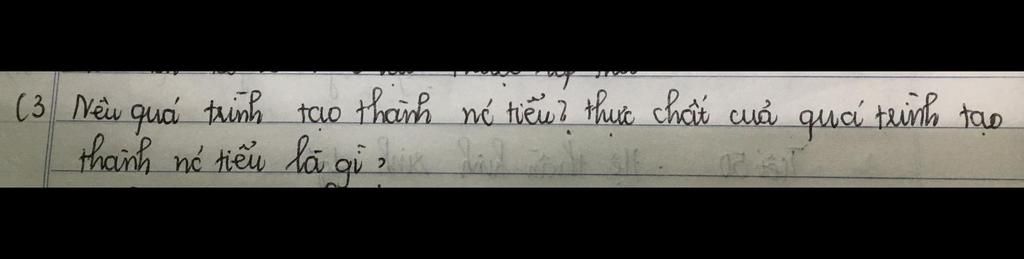 C3 Nêu quá trình tạo thành nć tiểu? thực chất của quá trình tạo
thành nć tiểu là gì?